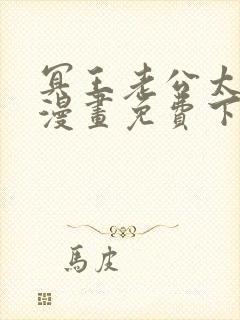 冥王老公太
漫畫免費下
馬皮